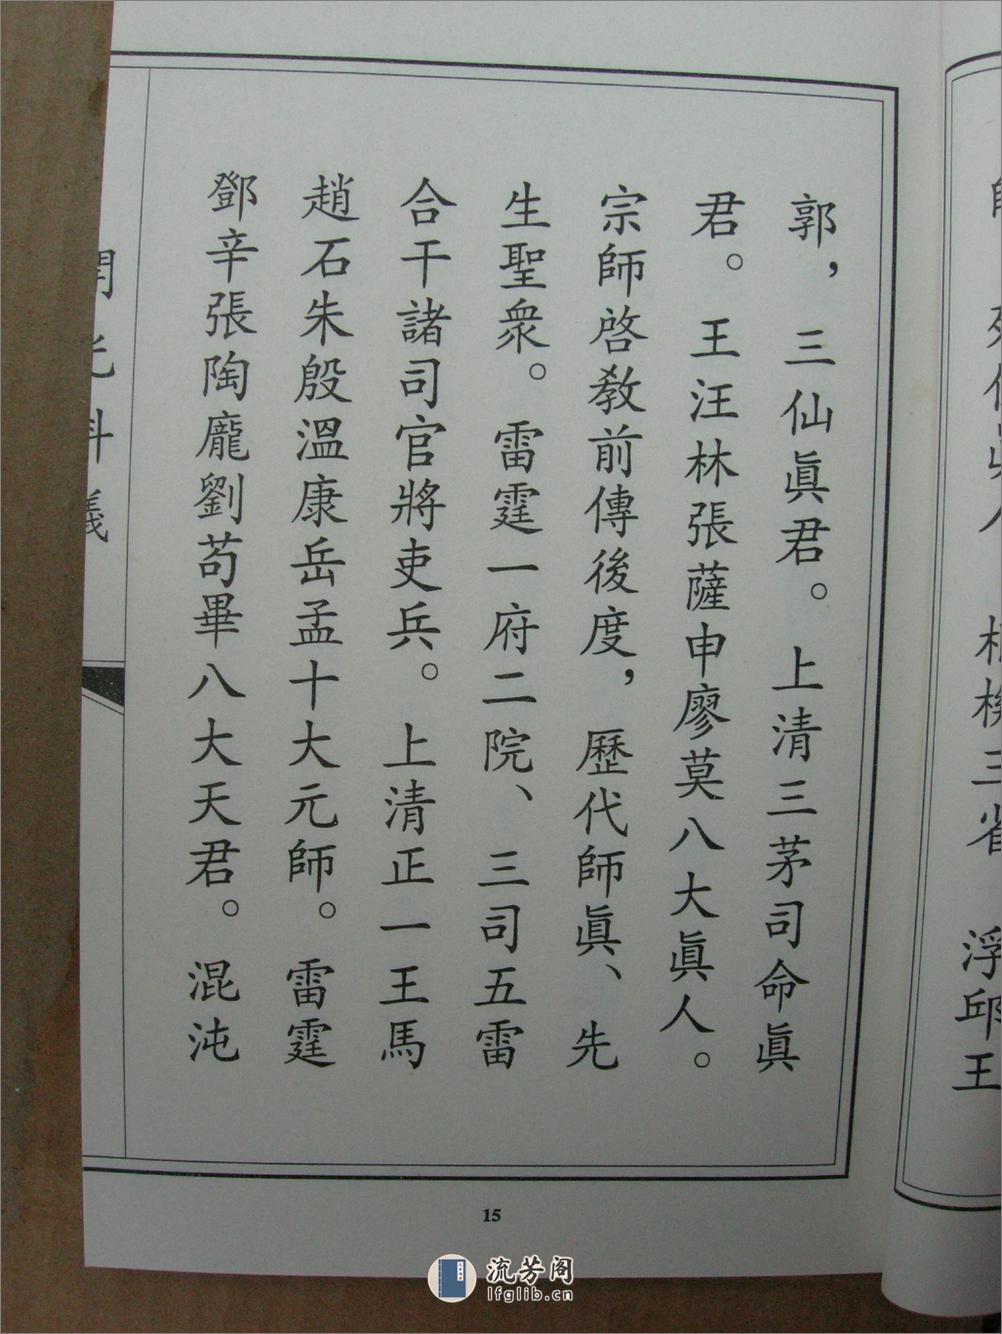 郭，三仙眞君。上清三茅司命眞
君。王汪林張薩申廖莫八大眞人。
宗師啓教前傳後度，歷代師眞、先
生聖衆。雷霆一府二院、三司五雷
合干諸司官將吏兵。上清正一王馬
趙石朱殷溫康岳孟十大元師。雷霆
鄧辛張陶龐劉苟畢八大天君。混沌
開光科儀
15
浮邱王
流芳阁
lfglib.cn